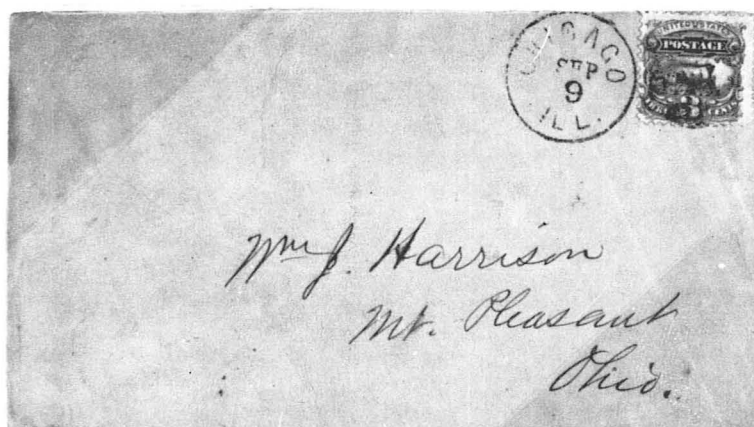 CHICAGO
SEP
9
ILL.
UNITED STATES
POSTAGE
3
Wm J. Harrison
Mt. Pleasant
Ohio.